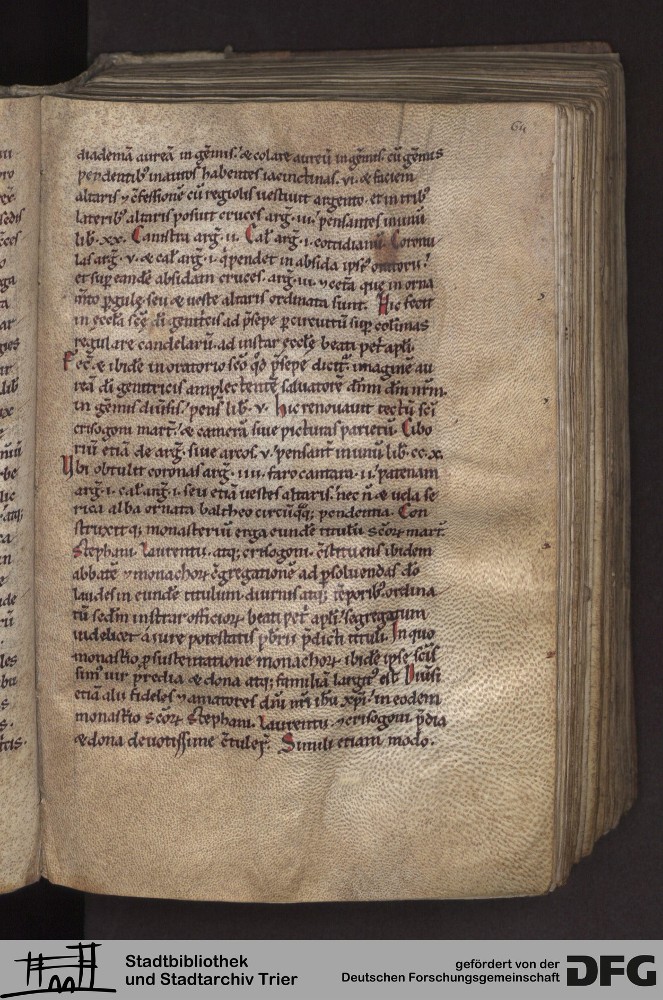 64
diademā aureā in gēmis. & colare aureū in gēmis. cū gēmis
pendentib᷒ inaures habentes iacinctinas. vi. & faciem
altaris ⁊ c̄fessionē cū regiolis uestiuit argento. et in trib᷒
laterib᷒ altaris posuit cruces arg̃. iii. pensantes in unū
lib̃. xx. Canistra arg̃. ii. Cal̃ arg̃. i. cottidianū. Coronu
las arg̃. v. & cal̃ arg̃. i. q̄ pendet in absida ipsi᷒ oratorii.
et sup eandē absidam cruces. arg̃. iii. ⁊ cetā que in orna
m̄to ꝑgule seu & ueste altaris ordinata sunt. Hic fecit
in eccl̃a scē di genit̃cis ad p̄sepe ꝑ circuitū sup colūnas
regulare candelarū. ad instar eccl̃e beati pet̃ apl̃i.
Fec̃. & ibidē in oratorio sc̄o qd̄ p̄sepē dicit̃. imaginē au
reā di genitricis amplectentē saluatorē dn̄m dm̄ nrm̄.
in gēmis diūsis. pens̃ lib̃. v. Hic renouauit tectū sc̄i
crisogoni mart̃. & camerā siue picturas parietū. Cibo
riū etiā de arg̃. siue arcos. v. pensant̃ in unū lib̃. cc. x.
Ubi obtulit coronas arg̃. iiii. faro cantara. ii. patenam
arg̃. i. cal̃ arg̃. i. seu etiā uestes altaris. nec ñ & uela se
rica alba ornata baltheo circūq̄q; pendentia. Con
struxit q; monasteriū erga eundē titulū sc̄oꝝ mart̃.
Stephani. Laurentii. atq; crisogoni. c̄stituens ibidem
abbatē ⁊ monachoꝝ c̄gregationē ad ꝑsoluendas dō
laudes in eundē titulum. diurnis atq; tēporib᷒ ordina
tū scdm instrar officioꝝ beati pet̃ apl̃i. segregatum
uidelicet a iure potestatis p̄br̄i p̄dicti tituli. In quo
monastio ꝓ sustentatione monachoꝝ ibidē ipse sc̄is
sim᷒ uir predia & dona atq; familiā largit᷒ est. Diūsi
etiā alii fideles ⁊ amatores dn̄i nr̄i ihū xp̄i. in eodem
monastio sc̄oꝝ Stephani. Laurentii. ⁊ crisogoni p̄dia
& dona deuotissime c̄tuleꝝ. Simili etiam modo.
Stadtbibliothek
und Stadtarchiv Trier
gefördert von der
Deutschen Forschungsgemeinschaft
DFG